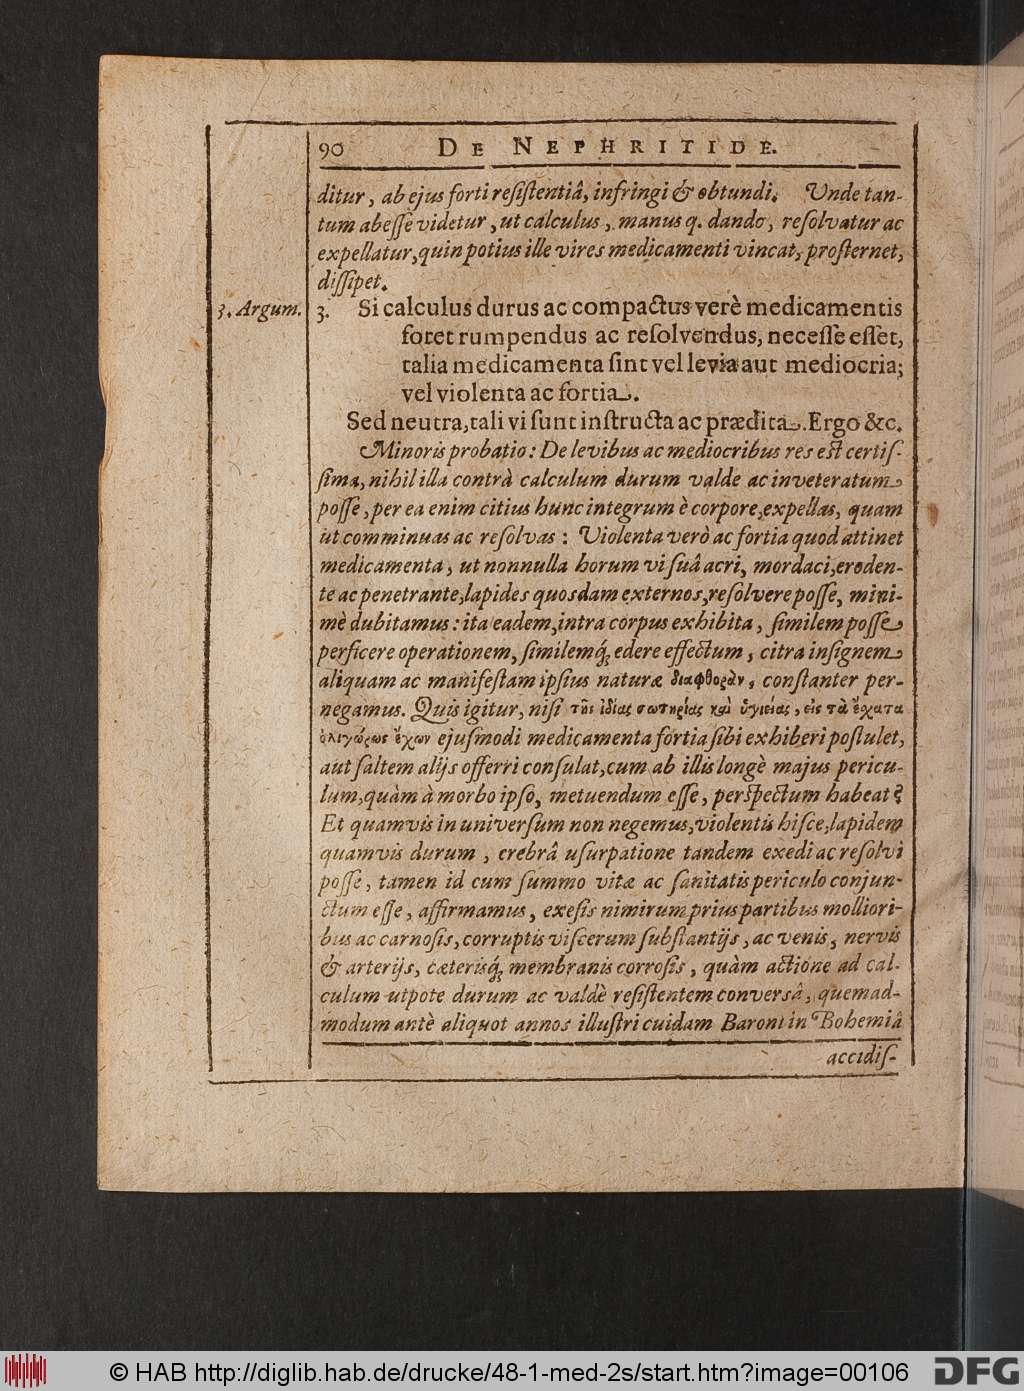 90 DE NEPHRITIDE.
ditur, ab ejus forti reſiſtentiâ, infringi & obtundi. Unde tan-
tum abeſſe videtur, ut calculus, manus q. dando, reſolvatur ac
expellatur, quin potius ille vires medicamenti vincat, proſternet,
diſſipet.
3. Argum. 3. Si calculus durus ac compactus verè medicamentis
foret rumpendus ac reſolvendus, neceſſe eſſet,
talia medicamenta ſint vel levia aut mediocria;
vel violenta ac fortia.
Sed neutra, tali vi ſunt inſtructa ac prædita. Ergo &c.
Minoris probatio: De levibus ac mediocribus res eſt certiſ-
ſima, nihil illa contrà calculum durum valde ac inveteratum
poſſe, per ea enim citius hunc integrum è corpore, expellas, quam
ut comminuas ac reſolvas: Violenta verò ac fortia quod attinet
medicamenta, ut nonnulla horum vi ſuâ acri, mordaci, eroden-
te ac penetrante, lapides quosdam externos, reſolvere poſſe, mini-
mè dubitamus: ita eadem, intra corpus exhibita, ſimilem poſſe
perficere operationem, ſimilemq́; edere effectum, citra inſignem
aliquam ac manifeſtam ipſius naturæ διαφθορὰν, conſtanter per-
negamus. Quis igitur, niſi τῆς ἰδίας σωτηρίας καὶ ὑγιείας, εἰς τὰ ἔχατα
ὀλιγώρως ἔχων ejuſmodi medicamenta fortia ſibi exhiberi poſtulet,
aut ſaltem alijs offerri conſulat, cum ab illis longè majus pericu-
lum, quàm à morbo ipſo, metuendum eſſe, perſpectum habeat?
Et quamvis in univerſum non negemus, violentis hiſce, lapidem
quamvis durum, crebrâ uſurpatione tandem exedi ac reſolvi
poſſe, tamen id cum ſummo vitæ ac ſanitatis periculo conjun-
ctum eſſe, affirmamus, exeſis nimirum prius partibus molliori-
bus ac carnoſis, corruptis viſcerum ſubſtantijs, ac venis, nervis
& arterijs, cæterisq́; membranis corroſis, quàm actione ad cal-
culum utpote durum ac valdè reſiſtentem conversâ, quemad-
modum antè aliquot annos illuſtri cuidam Baroni in Bohemiâ
accidiſ-
© HAB http://diglib.hab.de/drucke/48-1-med-2s/start.htm?image=00106 DFG